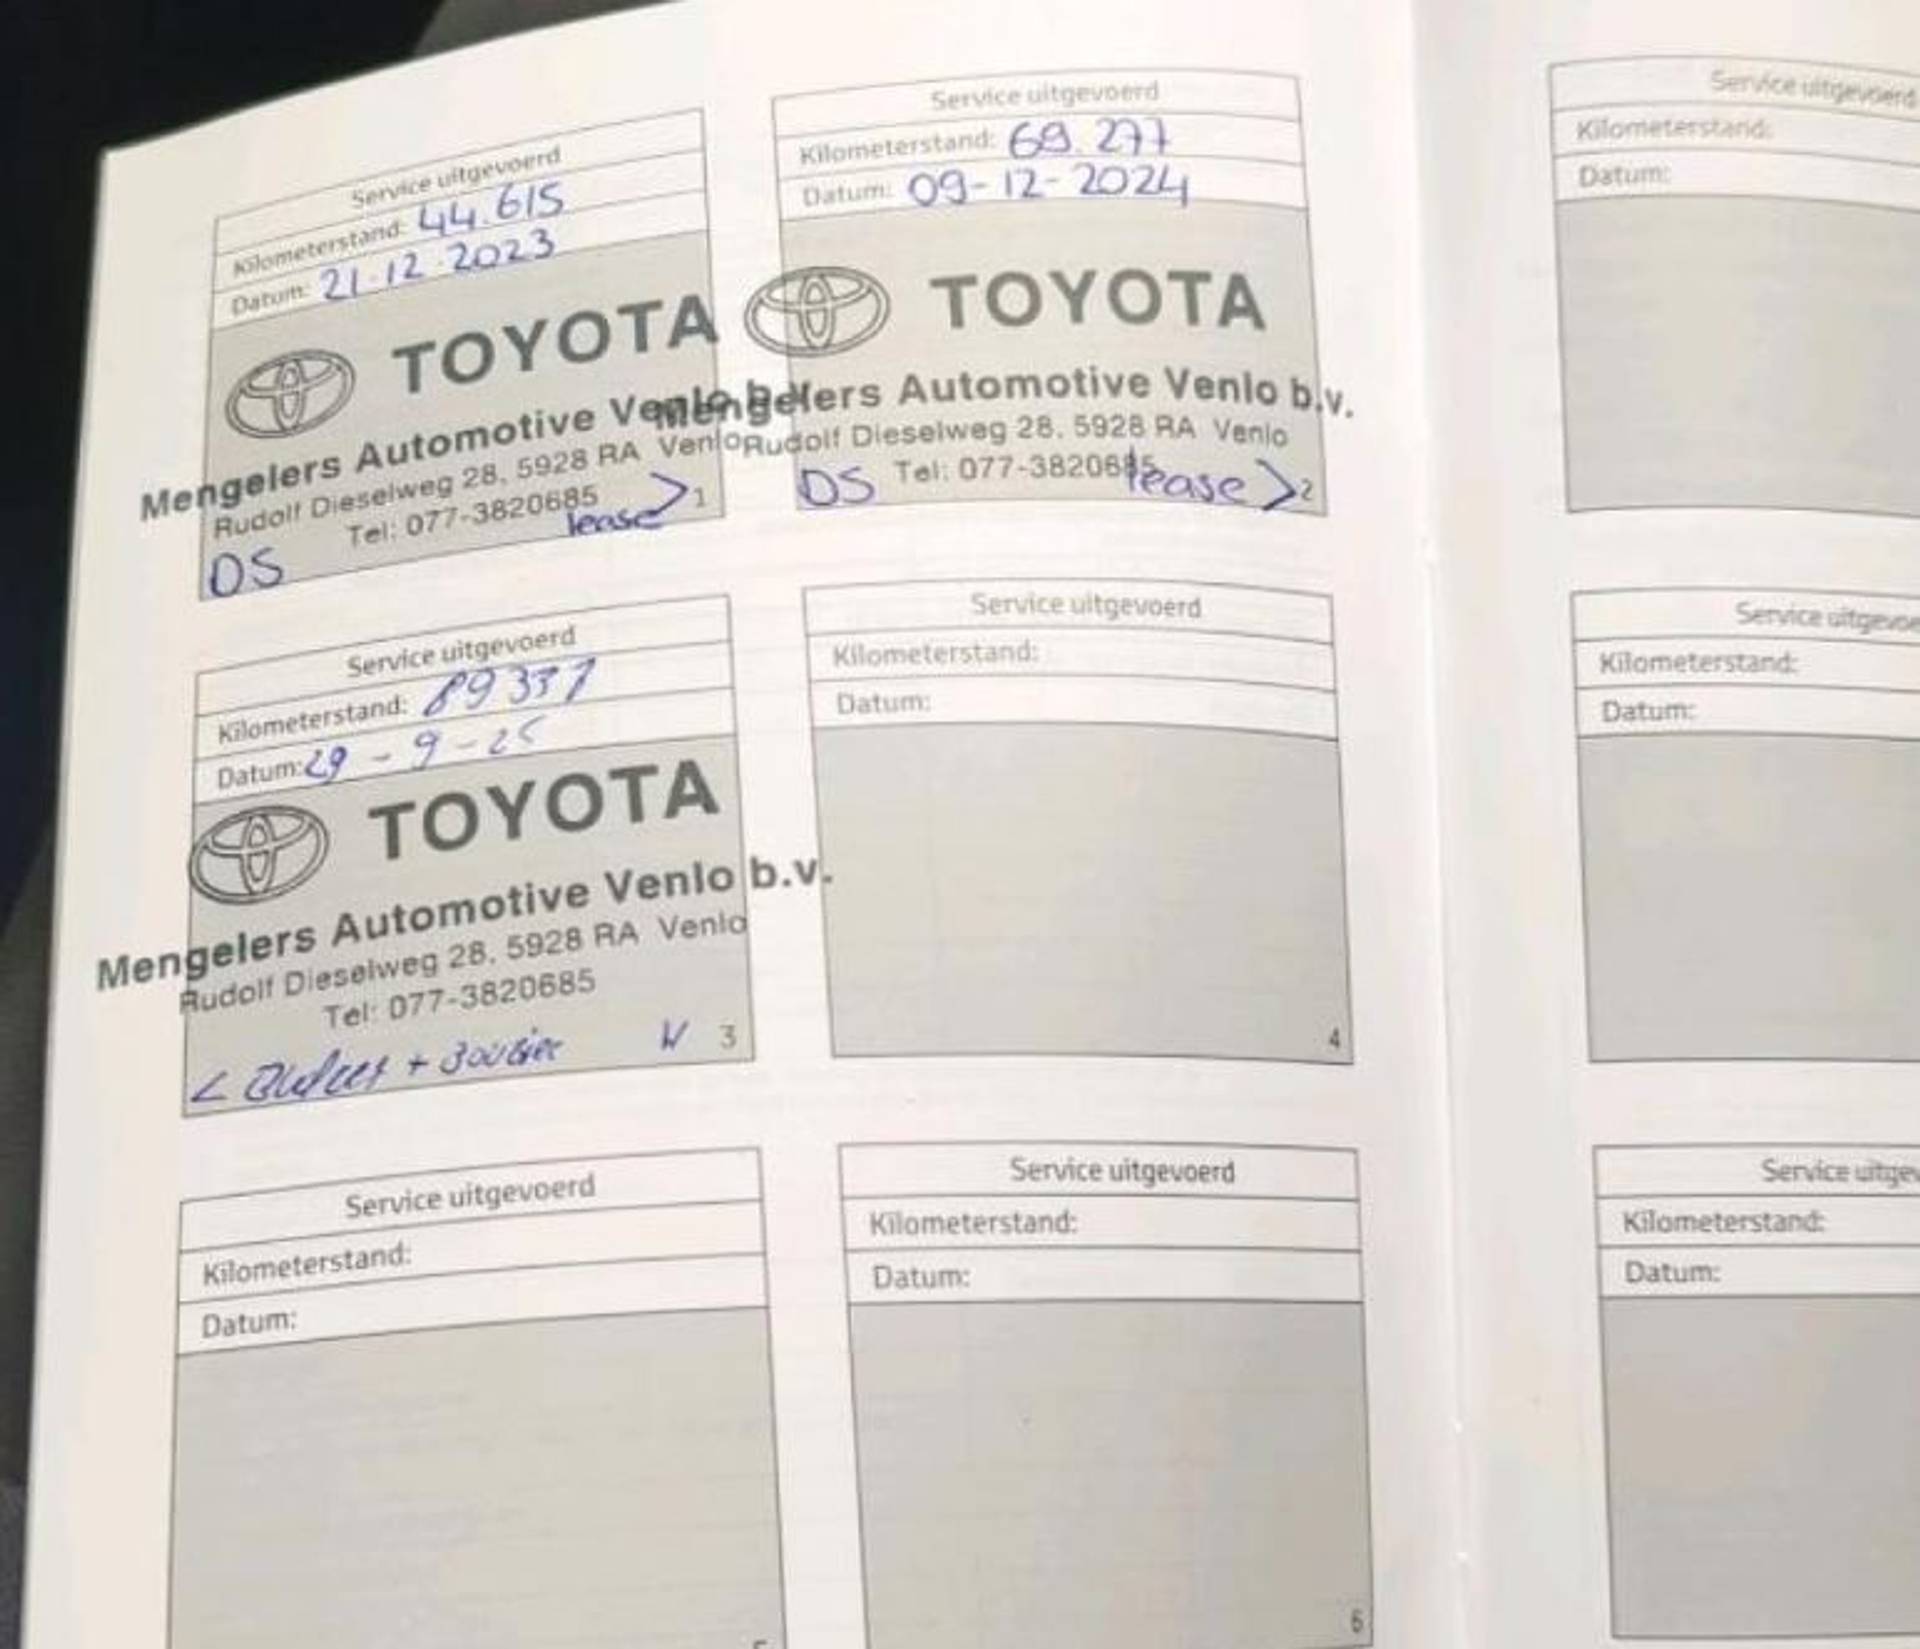 Service uitgevoerd
Kilometerstand: 44.615
Datum: 21.12.2023
TOYOTA
Mengelers Automotive Venlo b.v.
Rudolf Dieselweg 28, 5928 RA Venlo
Tel: 077-3820685
lease > 1
DS
Service uitgevoerd
Kilometerstand: 69.277
Datum: 09-12-2024
TOYOTA
Mengelers Automotive Venlo b.v.
Rudolf Dieselweg 28, 5928 RA Venlo
Tel: 077-3820685
DS lease > 2
Service uitgevoerd
Kilometerstand:
Datum:
Service uitgevoerd
Kilometerstand: 89337
Datum: 29-9-25
TOYOTA
Mengelers Automotive Venlo b.v.
Rudolf Dieselweg 28, 5928 RA Venlo
Tel: 077-3820685
< + 3
Service uitgevoerd
Kilometerstand:
Datum:
4
Kilometerstand:
Datum:
Service uitgevoerd
Kilometerstand:
Datum:
Service uitgevoerd
Kilometerstand:
Datum:
6
Kilometerstand:
Datum: